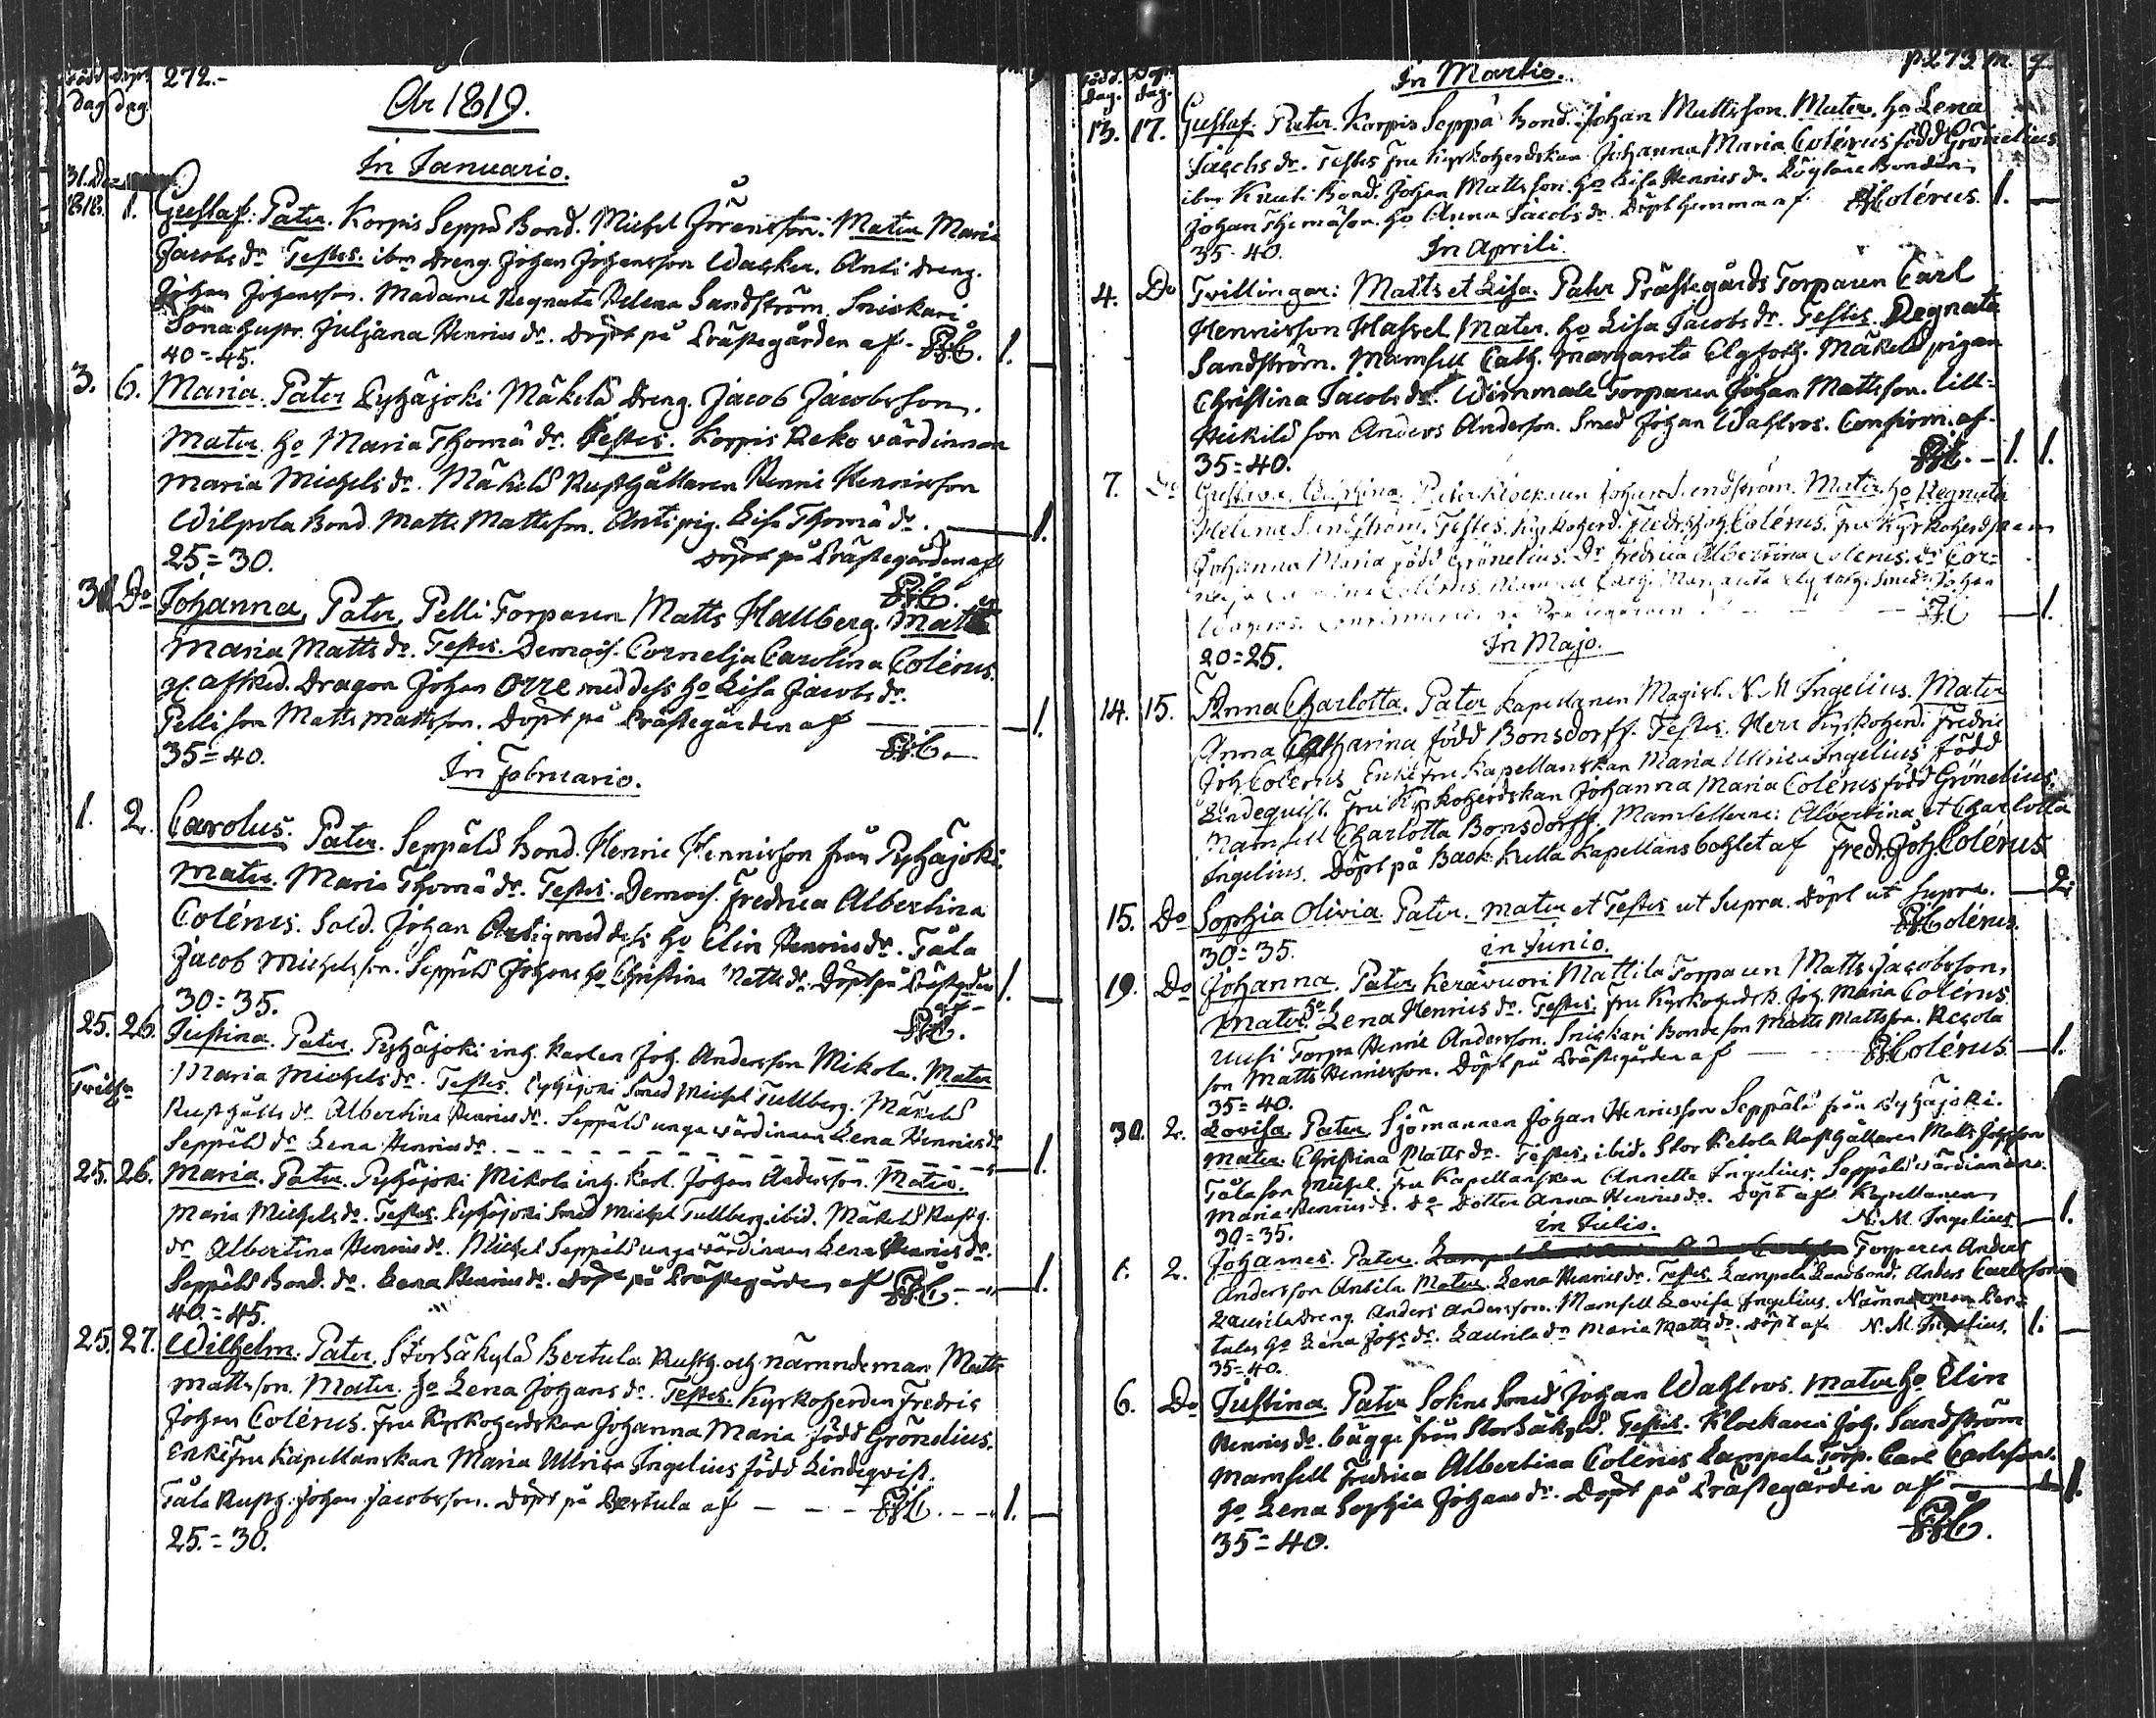 född döpt 272.-
dag dag.
År 1819.
In Januario.
31. Dec.
1818. 1. Gustaf. Pater. Korpis Seppä Bond. Michel Jöransson. Mater Maria
Jacobs dr. Testes. ibm dreng. Johan Johansson Walken. Anti dreng.
Johan Johansson. Madame Regnata Helena Sandström. Sniskari
Sona hustr. Juljana Henrics dr. Döpt på Prästegården af. FJC. 1.
40=45.
3. 6. Maria. Pater Pyhäjoki Mäkelä dreng. Jacob Jacobsson.
Mater. Ho Maria Thomæ dr. Testes. Korpis Reko värdinnan
Maria Michels dr. Mäkelä Rusthållaren Henric Henricsson
Wilpola Bond. Matts Mattsson. Anti pig. Lisa Thomæ dr. 1.
25=30. Döpt på Prästegården af
FJC.
Do Johanna, Pater, Pelli Torparen Matts Hallberg. Mater
Maria Matts dr. Testes. Demois. Cornelja Carolina Colérus.
afsked. Dragon Johan Orre med dess ho Lisa Jacobs dr.
Pelli son Matts Mattsson. Döpt på Prästegården af 1.
35=40. FJC.
In Februario.
1. 2. Carolus. Pater. Seppälä Bond. Henric Henricsson från Pyhäjoki.
Mater. Maria Thomæ dr. Testes. Demois. Fredrica Albertina
Colérus. Sold. Johan Artig med dess ho Elin Henrics dr. Tåla
Jacob Michelsson. Seppälä Johans ho Christina Matts dr. Döpt på Prästegården 1.
30=35. af
FJC.
25. 26. Justina. Pater. Pyhäjoki inh. karlen Joh. Andersson Mikola. Mater
Maria Michels dr. Testes. Pyhäjoki Smed Michel Tullberg. Mäkelä
Rusthålls dr. Albertina Henrics dr. Seppälä unga värdinnan Lena Henrics dr
Seppälä dr. Lena Henrics dr. 1.
25. 26. Maria. Pater. Pyhäjoki Mikola inh. karl. Johan Andersson. Mater.
Maria Michels dr. Testes. Pyhäjoki Smed Michel Tullberg. ibid. Mäkelä Rusth.
dr Albertina Henrics dr. Michel Seppälä unga värdinnan Lena Henrics dr.
Seppälä Bond. dr. Lena Henrics dr. Döpt på Prästegården af FJC. 1.
40=45.
25. 27. Wilhelm. Pater. Storsäkylä Bertula Rusth. och nämndeman Matts
Mattsson. Mater. ho Lena Johans dr. Testes. Kyrkoherden Fredric
Johan Colérus. Fru Kyrkoherdskan Johanna Maria född Grönelius.
Enkefru Kapellanskan Maria Ullrica Ingelius född Lindeqvist.
Tåla Rusth. Johan Jacobsson. Döpt på Bertula af FJC. 1.
25.=30.
född. Döpt p273 m. q.
dag. dag.
In Martio.
13. 17. Gustaf. Pater. Korpis Seppä Bond. Johan Mattsson. Mater. ho Lena
Jacobs dr. Testes Fru Kyrkoherdskan Johanna Maria Colérus född Grönelius
ibm Knuti Bond. Johan Mattsson. ho Lisa Henrics dr. Bonden
Johan Thomasson. ho Anna Jacobs dr. Döpt hemma af FJColérus. 1.
35-40.
In Aprili.
4. Do Tvillingar: Matts et Lisa. Pater Prästegårds Torparen Carl
Henricsson Hassel. Mater. ho Lisa Jacobs dr. Testes. Regnata
Sandström. Mamsell Cath. Margareta Elgfoth. Mäkelä pigan
Christina Jacobs dr. Torparen Johan Mattsson. Lill-
son Anders Anderson. Smed Johan Wahlros. Confirm. af
35=40. FJC. 1. 1.
7. Do Pater Klockaren Johan Sandström. Mater. ho Regnata
Helena Sandström. Testes. Kyrkoherd. Fredr. Joh Colérus. Fru Kyrkoherdskan
Johanna Maria född Grönelius. Dr Fredrica Albertina Colerus. dr Cor-
Colérus. Mamsell Cath. Margareta Elgfoth. Smed. Johan
FJC 1.
20=25.
In Majo.
14. 15. Anna Charlotta. Pater Kapellanen Magist. N. M Ingelius. Mater
Anna Catharina född Bonsdorff. Testes. Herr Kyrkoherd. Fredric
Joh Colérus Enkefru Kapellanskan Maria Ullrica Ingelius född
Lindequist. Fru Kyrkoherdskan Johanna Maria Colérus född Grönelius.
Mamsell Charlotta Bonsdorff. Mamsellerne: Albertina et Charlotta
Ingelius. Döpt på Kapellans bohlet af Fredr. Joh. Colérus
15. Do Sophia Olivia. Pater. Mater et Testes ut Supra. Döpt ut Supra. 2.
30=35. FJColérus.
in Junio.
19. Do Johanna. Pater Keräwuori Mattila Torparen Matts Jacobsson.
Mater. ho Lena Henrics dr. Testes. Fru Kyrkoherdsk. Joh. Maria Colérus.
Uusi Torpa Henric Andersson. Sniskari Bonde son Matts Mattsson.
son Matts Henricsson. Döpt på Prästegården af FJColérus. 1.
35=40.
30. 2. Lovisa. Pater. Sjömannen Johan Henricsson Seppälä från Pyhäjoki.
Mater. Christina Matts dr. Testes. ibid. Stor Ketola Rusthållaren Matts Johsson
Tåla son Michel. Fru Kapellanskan Annetta Ingelius. Seppälä värdinnans
Maria Henrics dr. do Dotter Anna Henrics dr. Döpt afs Kapellanen
30=35. N. M. Ingelius 1.
in Julio.
1. 2. Johannes. Pater. Torparen Anders
Andersson Antila Mater. Lena Henrics dr. Testes. Lampola Landbond. Anders Carlsson
Laurila dreng. Anders Andersson. Mamsell Lovisa Ingelius. Nämndeman Ber-
tulas ho Lena Johs dr. Laurila dr Maria Matts dr. Döpt af N. M. Ingelius. 1.
35=40.
6. Do Justina. Pater Sokne Smed Johan Wahlros. Mater ho Elin
Henrics dr. bägge från Storsäkylä. Testes. Klockaren Joh. Sandström
Mamsell Fredrica Albertina Colérus Lampola Torp. Carl Carlsson.
ho Lena Sophia Johans dr. Döpt på Prästegården af 1.
35=40. FJC.